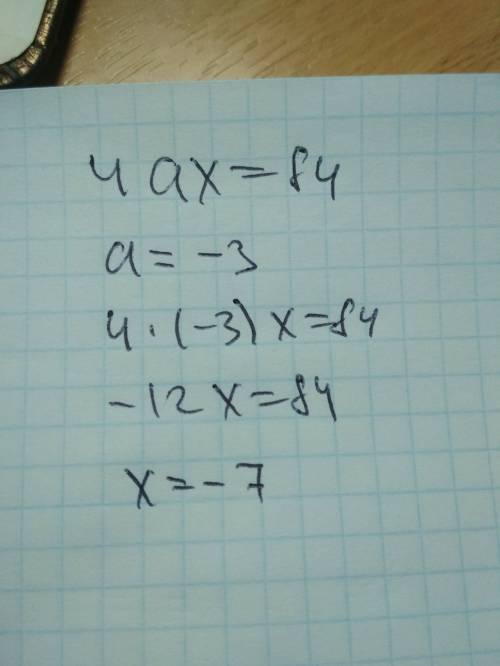 4 ax = 84
a = -3
4 · (-3) x = 84
-12 x = 84
x = -7